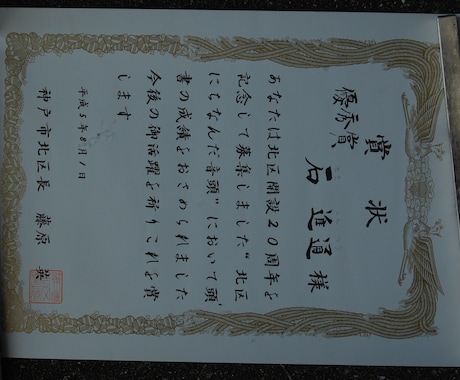 賞状
優秀賞
石 進 様
あなたは北区開設20周年を
記念して募集しました“北区
にちなんだ音頭”において頭
書の成績をおさめられました
今後の御活躍を祈りこれを賞
します
平成5年8月1日
神戸市北区長 藤原 英